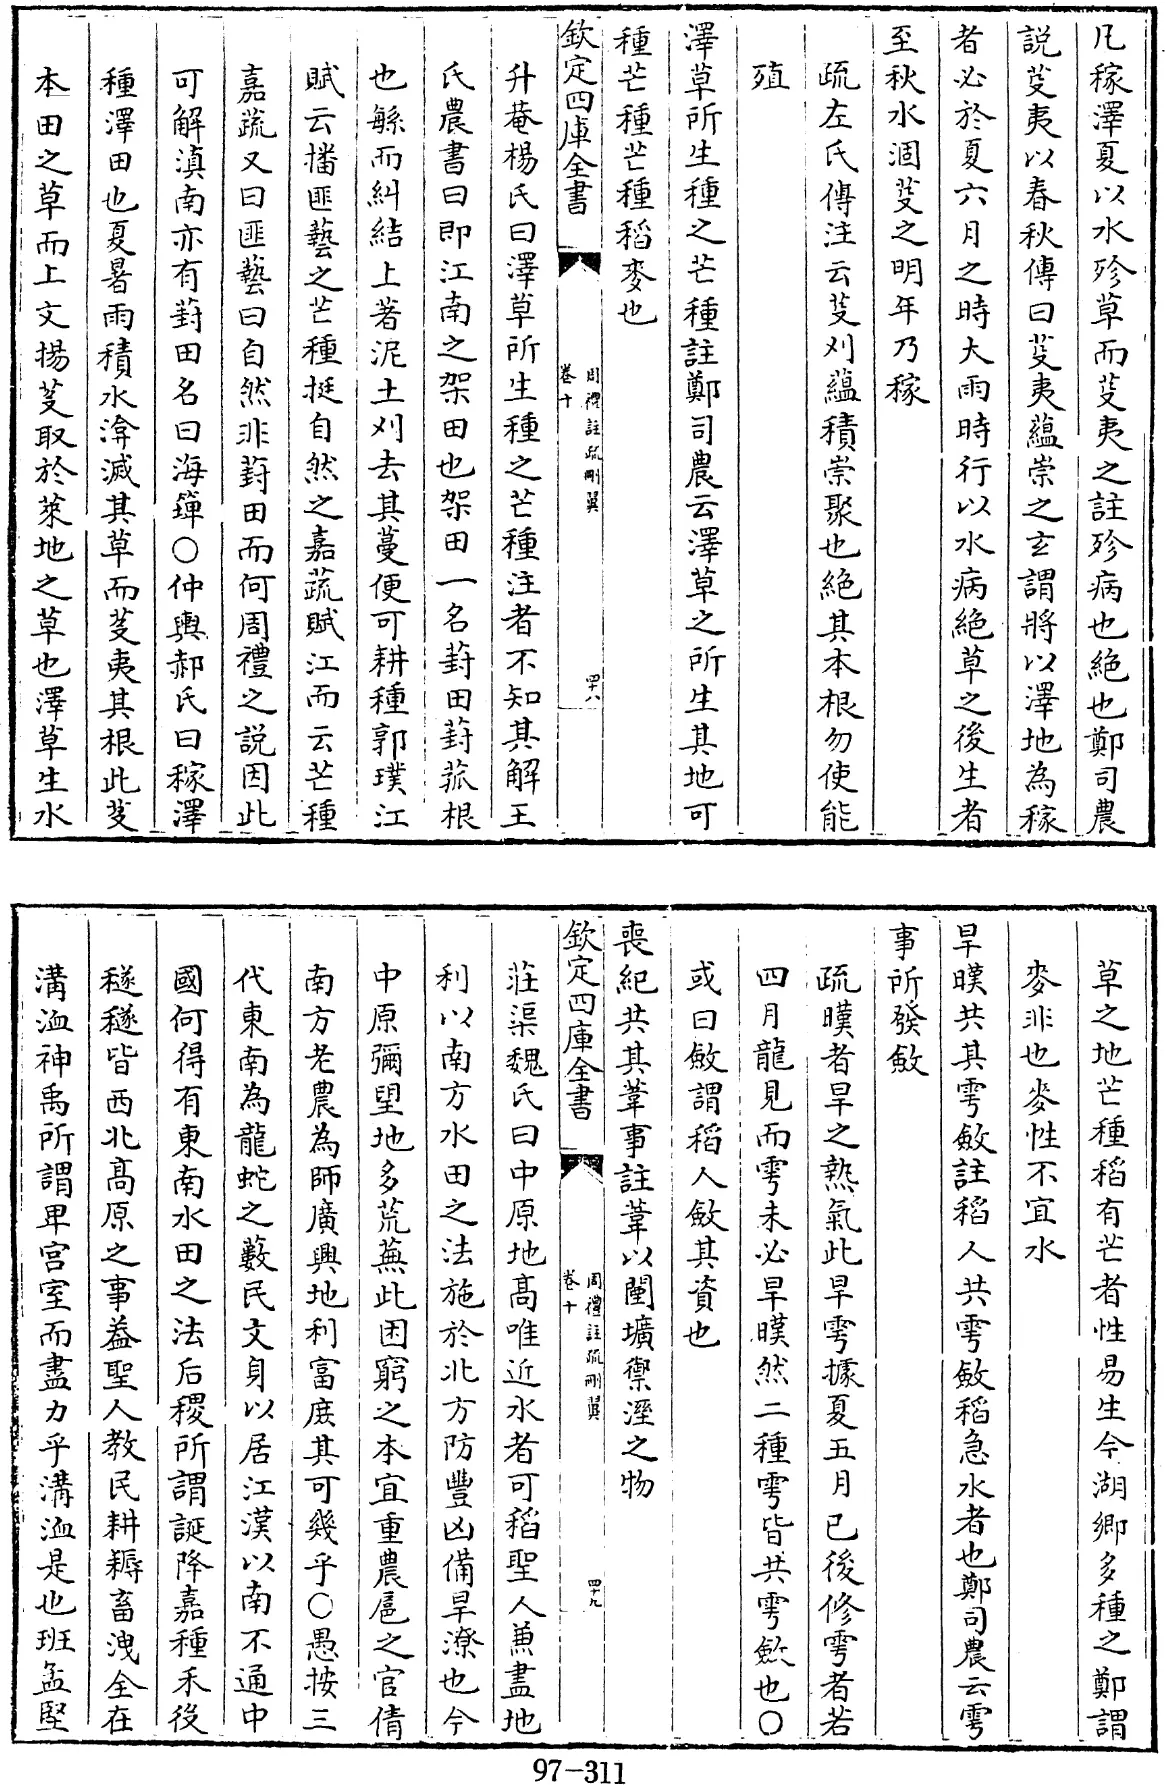 凡稼澤夏以水殄草而芟夷之註殄病也絶也鄭司農
説芟夷以春秋傳曰芟夷蘊崇之玄謂將以澤地為稼
者必於夏六月之時大雨時行以水病絶草之後生者
至秋水涸芟之明年乃稼
疏左氏傳注云芟刈蘊積崇聚也絶其本根勿使能
殖
澤草所生種之芒種註鄭司農云澤草之所生其地可
種芒種芒種稻麥也
欽定四庫全書
周禮註疏刪翼
卷十
四十八
升菴楊氏曰澤草所生種之芒種注者不知其解王
氏農書曰即江南之架田也架田一名葑田葑菰根
也緐而糾結上著泥土刈去其蔓便可耕種郭璞江
賦云播匪藝之芒種挺自然之嘉蔬賦江而云芒種
嘉蔬又曰匪藝曰自然非葑田而何周禮之説因此
可解滇南亦有葑田名曰海簰〇仲輿郝氏曰稼澤
種澤田也夏暑雨積水渰滅其草而芟夷其根此芟
本田之草而上文揚芟取於萊地之草也澤草生水
草之地芒種稻有芒者性易生今湖鄉多種之鄭謂
麥非也麥性不宜水
旱暵共其雩斂註稻人共雩斂稻急水者也鄭司農云雩
事所發斂
疏暵者旱之熱氣此旱雩據夏五月已後修雩者若
四月龍見而雩未必旱暵然二種雩皆共雩斂也〇
或曰斂謂稻人斂其資也
喪紀共其葦事註葦以闉壙禦溼之物
欽定四庫全書
周禮註疏刪翼
卷十
四十九
莊渠魏氏曰中原地髙唯近水者可稻聖人兼盡地
利以南方水田之法施於北方防豐凶備旱潦也今
中原彌望地多荒蕪此困窮之本宜重農扈之官倩
南方老農為師廣興地利富庶其可幾乎〇愚按三
代東南為龍蛇之藪民文身以居江漢以南不通中
國何得有東南水田之法后稷所謂誕降嘉種禾役
穟穟皆西北髙原之事葢聖人教民耕耨畜洩全在
溝洫神禹所謂卑宫室而盡力乎溝洫是也班孟堅
97-311